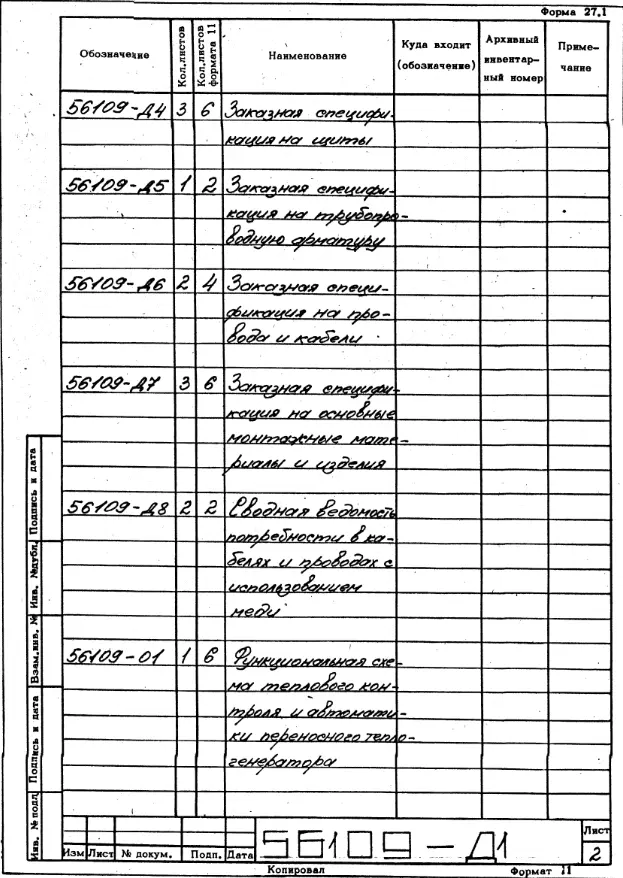 Форма 27.1
Обозначение
Кол.листов
Кол.листов формата 11
Наименование
Куда входит (обозначение)
Архивный инвентар- ный номер
Приме- чание
56109-Д4 3 6 Заказная специфи-
кация на щиты
56109-Д5 1 2 Заказная специфи-
кация на трубопро-
водную арматуру
56109-Д6 2 4 Заказная специ-
фикация на про-
вода и кабели
56109-Д7 3 6 Заказная специфи-
кация на основные
монтажные мате-
риалы и изделия
56109-Д8 2 2 Сводная ведомость
потребности в ка-
белях и проводах с
использованием
меди
56109-01 1 6 Функциональная схе-
ма теплового кон-
троля и автомати-
ки переносного тепло-
генератора
Инв. № подл.
Подпись и дата
Взам.инв. №
Инв. №дубл.
Подпись и дата
Изм Лист № докум. Подп. Дата
56109-Д1
Лист
2
Копировал
Формат 11